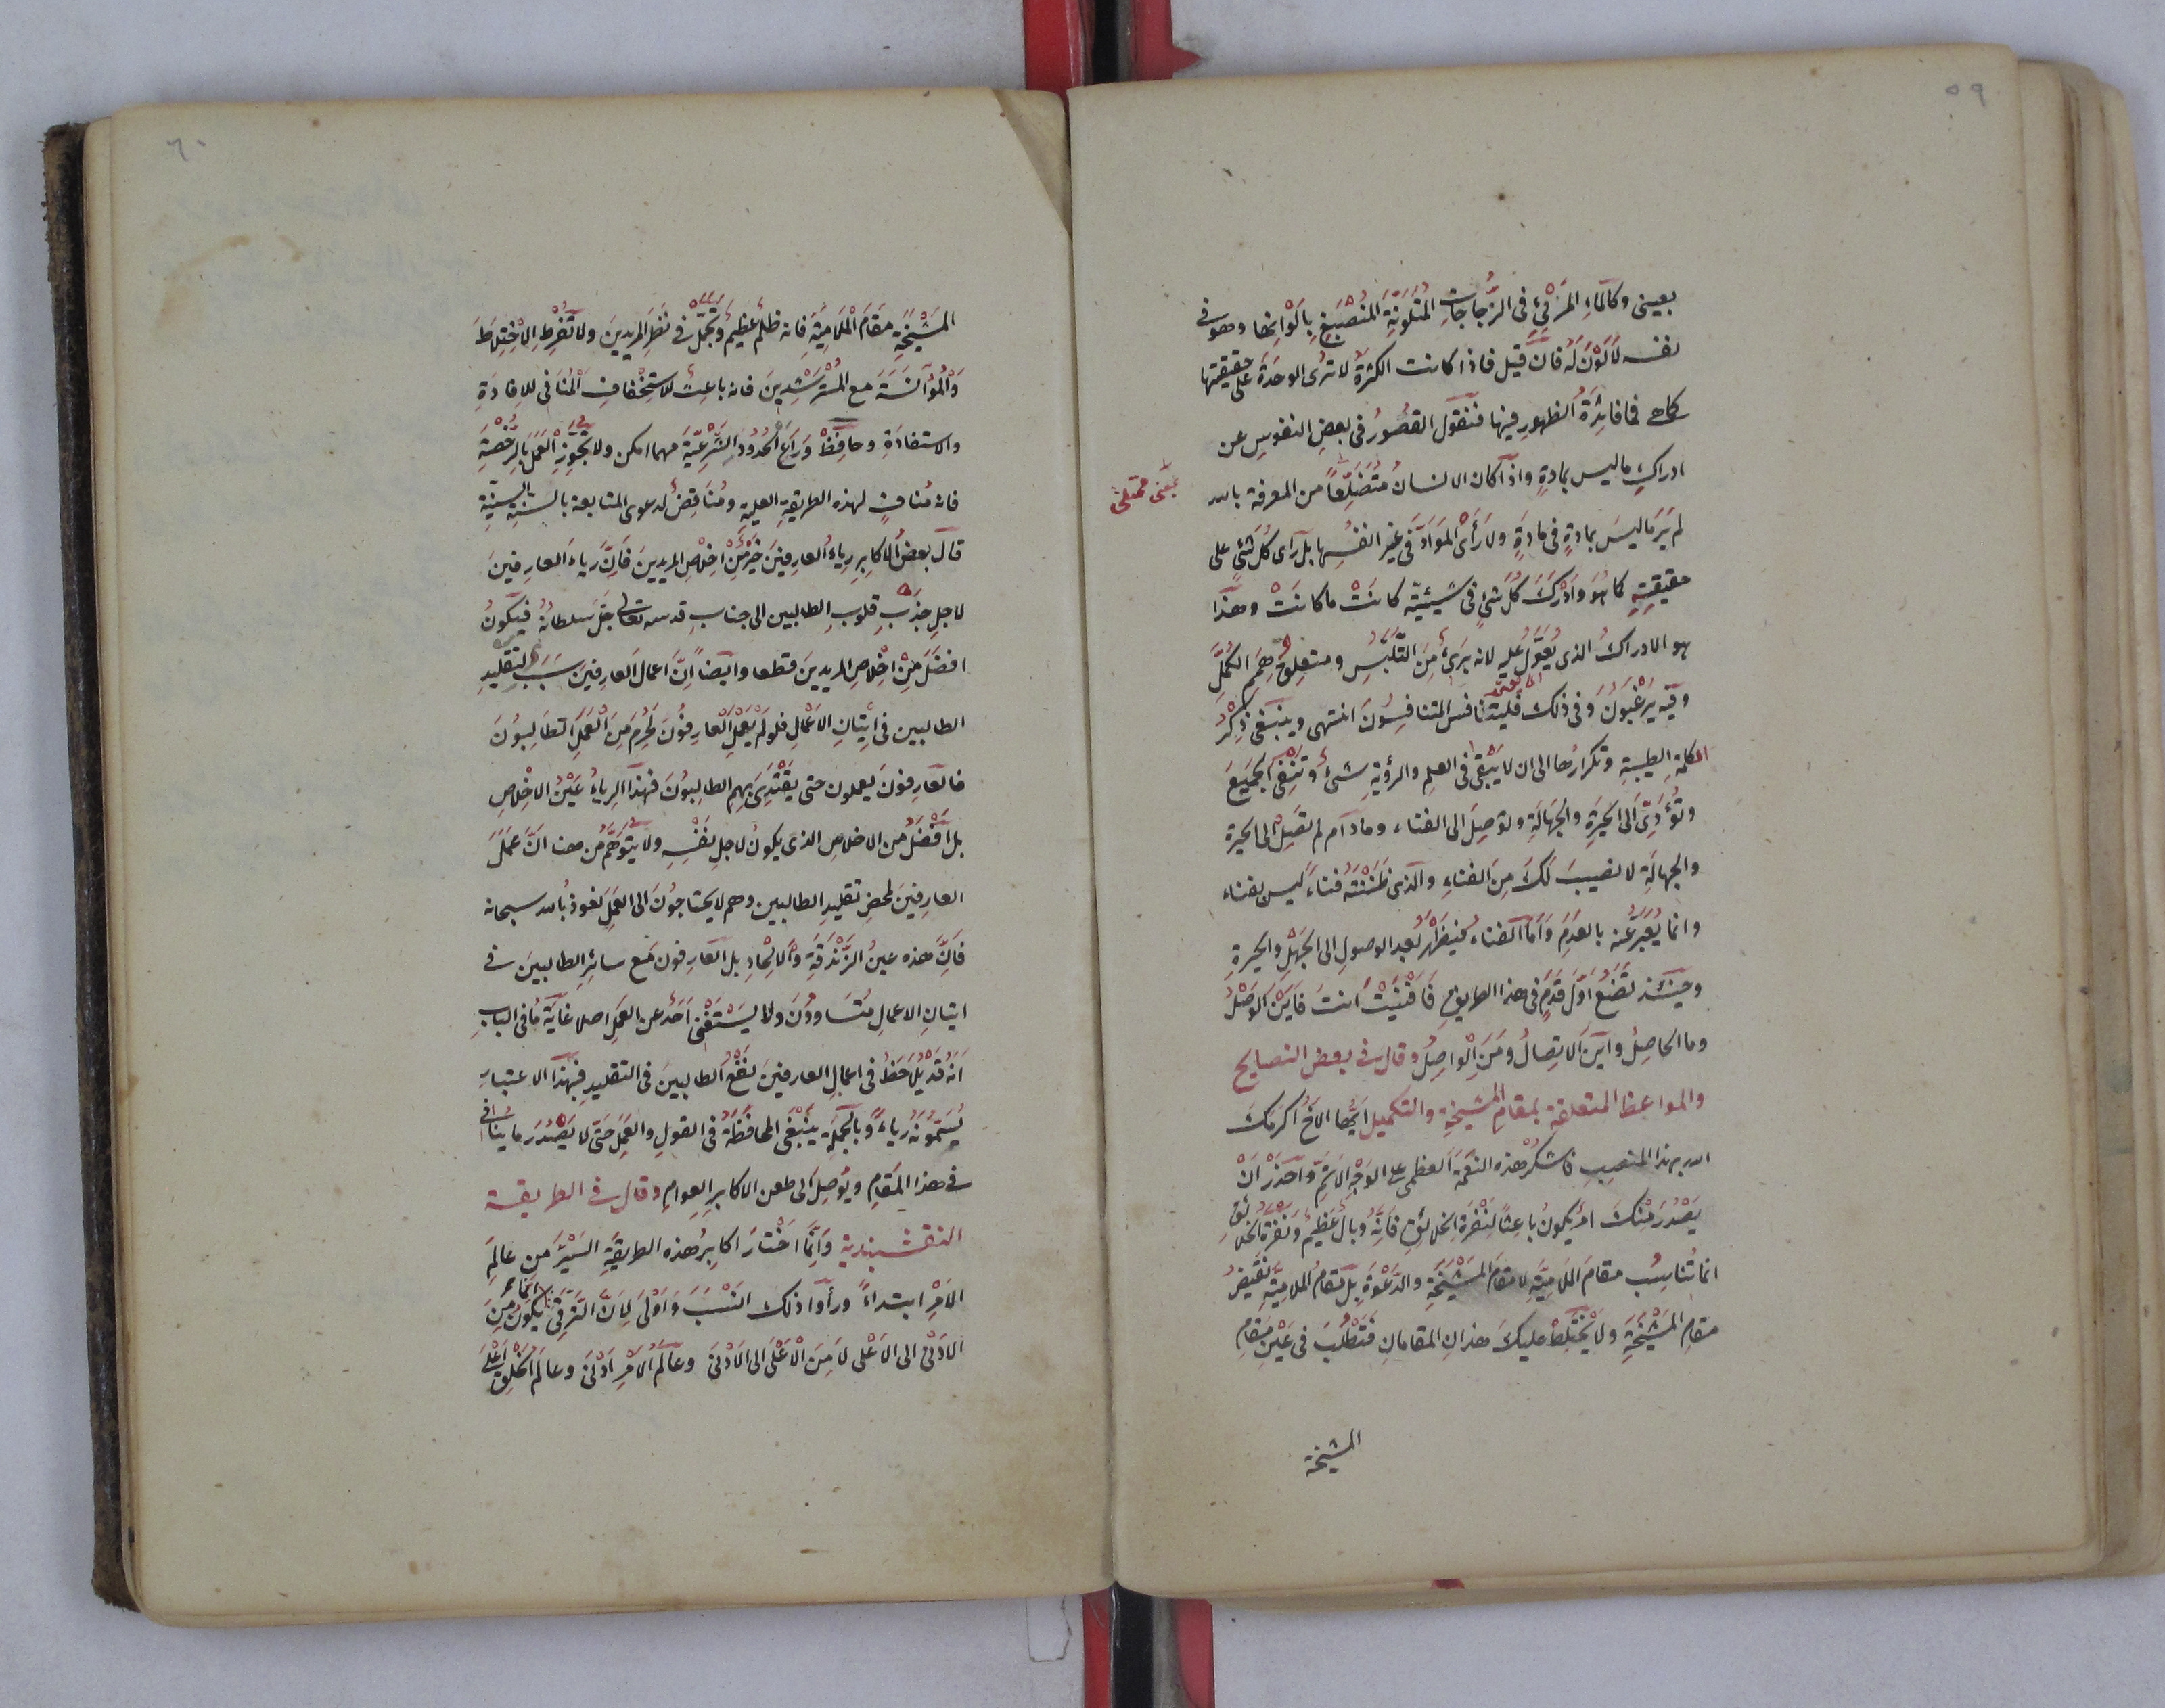 ٥٩
بعينى وكالماءِ المَرْئِيِّ فى الزُّجاجاتِ المُتَلَوِّنَةِ المُنْصَبِغِ بِاَلْوَانِها وهو فى
نفسه لاَلَوْنَ لَهُ فان قيل فاذا كانت الكثرة لا ترى الوحدَةَ على حقيقتها
كماهى فما فائدَةُ الظهورِ فيها فنقول القُصُورُ فى بعضِ النفوسِ عن
ادراكِ ماليس بمادةٍ واذا كان الانسانُ مُتَضَلِّعاً من المعرفة بالله
بمعنى ممتلئ
لم يَرَ ماليسَ بمادةٍ فى مادَةٍ ولا رَأى المَوَادَّ فى غير انفُسِها بل رَاى كُلَّ شئٍ على
حقيقيتِهِ كما هُوَ وَاَدْرَكَ كُلَّ شئٍ فى شَيْئيته كانَتْ ما كانَتْ وهذا
هو الادراكُ الذى يُعَوَّلُ عليهِ لانه بَرئٌ مِنَ التَّلَبُّسِ ومتعلقُ هِمَمِ الكُمَّلِ
وفيه يَرْغَبُونَ وفى ذلك فليتنافس المتنافِسُونَ انتهى وينبغى ذِكْرُ
الكلمةِ الطيبةِ وتكرارُها الى ان لا يَبْقى فى العلمِ والرؤيةِ شئٌ وتَنْفِىَ الجميعَ
وتُؤَدِّىَ اَلى الحَيْرَةِ والجَهَالَةِ وتوَصِلَ الى الفناء وما دام لم تَصِلْ الى الحيرة
والجهالَةِ لا نصيبَ لَكَ مِنَ الفناءِ والذى ظَنَنْتَهُ فناءً ليس بفناء
وانما يُعَبَّرُ عنه بالعدَمِ وَاَما الفناء فيَظْهَرُ بعد الوصولِ الى الجَهْلِ والحيرةِ
وحينئذ تَضَعُ اوّلَ قَدَمٍ فى هذا الطريقِ فَافْنَيْتَ انتَ فَاَيْنَ الوَصْلُ
وما الحاصِلُ واَيْنَ الاتِصالُ وَمَنِ الْواصِلُ وقال فى بعض النصايح
والمواعظ المتعلقة بمقامِ المشيخةِ والتكميل اَيُّها الاَخُ اكرَمَكَ
الله بهذا المنصِبِ فاشكُرْ هذه النعْمَةَ العظمى على الوَجْهِ الاَتَمِّ واحْذَرْ اَنْ
يَصْدُرَ مِنْكَ امرٌ يكونُ باعِثاً لِنُفْرَةِ الخلائِقِ فَاِنَّهُ وبالٌ عَظيمٌ وَنفْرَةُ الخَلائِقِ
انما تُناسِبُ مقامَ المَلاَمِيَّةِ لا مقامَ المَشْيَخَةِ والدَّعْوَةِ بل مَقامُ المَلاَمِيَّةِ نَقيضُ
مقامِ المَشْيَخَةِ ولا يَخْتَلِطْ عليكَ هذانِ المقامانِ فَتَطْلُبَ فى عَيْنِ مَقامِ
المشيخة
٦٠
المَشْيَخَةِ مَقَامَ الْمَلَامِيَّةِ فانه ظلمٌ عظيمٌ وَتَجَمَّلْ فى نَظَرِ المريدينَ ولا تُفْرِطِ الاِخْتِلاطَ
وَالْمُوآنَسَةَ مع المُسْتَرْشِدِينَ فانه باعِثٌ للاستِخْفافِ الْمُنَافى للاِفادَةِ
والاستفادَةِ وحافِظْ وَرَاعِ الحُدُودَ الشَّرْعِيَّةَ مهما امكن ولا تُجَوِّزِ الْعَمَلَ بالرُّخْصَةِ
فانه مُنافٍ لهذه الطريقةِ العليةِ ومُنَاقِضٌ لدعوى المتابعة بالسنةِ السنِيَّةِ
قالَ بعضُ الاكابِرِ رِياءُ العارفينَ خَيْرٌ مِنْ اِخْلاصِ المريدينَ فَاِنَّ رياءَ العارِفينَ
لاجلِ جَذْبِ قلوبِ الطالبين الى جنابِ قدسه تعالى جَلَّ سَلطانُهُ فيكونُ
افضَلَ مِنْ اِخْلاصِ المريدينَ قطعا وايضاً اِنَّ اعمالَ العارِفينَ سَبَبٌ لتقليدِ
الطالبين فى اِتْيَانِ الاَعْمَالِ فلو لَمْ يَعْمَلِ العارِفُونَ لَحُرِمَ مِنَ الْعَمَلِ الطَالِبُونَ
فالعارِفونَ يعملون حتى يَقْتَدِىَ بِهِم الطالِبُونَ فهذا الرياءُ عَيْنُ الاِخْلاصِ
بل اَفْضَلُ من الاخلاصِ الذى يكونُ لاجلِ نَفْسِهِ ولا يُتَوَهَّمُ من هنا اَنَّ عَمَلَ
العارِفينَ لمحْضِ تقليدِ الطالبين وهم لايحتاجُونَ الى العَمَلِ نعوذُ بالله سبحانه
فَاِنَّ هذه عينُ الزَّنْدَقَةِ وَالاِلْحادِ بل العارِفونَ مَعَ سائِرِ الطالبينَ فى
اِتيانِ الاعمالِ مُتَسَاوُونَ ولا يَسْتَغْنى اَحَدٌ عن العَمَلِ اصلا غايَةُ ما فى البابِ
اَنَّهُ قَدْ يُلاَحَظُ فى اعمالِ العارفينَ نَفْعُ الطالبينَ فى التقليدِ فبِهذا الاعتبارِ
يُسَمُّونَهُ رِياءً وَبِالْجُمْلَةِ يَنْبَغى المحافَظَةُ فى القولِ والعَمَلِ حَتَّى لا يَصْدُرَ ما يُنافى
فى هذا المَقامِ ويُوصِلُ الى طعن الاكابرِ العوامِ وقال فى الطريقة
النقشبندية وَاِنَّما اخْتارَ اكابِرُ هذه الطريقَةِ السَّيْرَ مِن عالَمِ
الاَمْرِ ابتداءً ورأَوا ذلك اَنْسَبَ وَاَوْلى لِاَنَّ التَّرَقِّىَ انما يكونُ مِنَ
الاَدْنى الى الاَعْلى لاَ مِنَ الْاَعْلى الى الاَدْنى وعالَمُ الاَمْرِ اَدْنى وعالَمُ الخَلْقِ اَعْلى